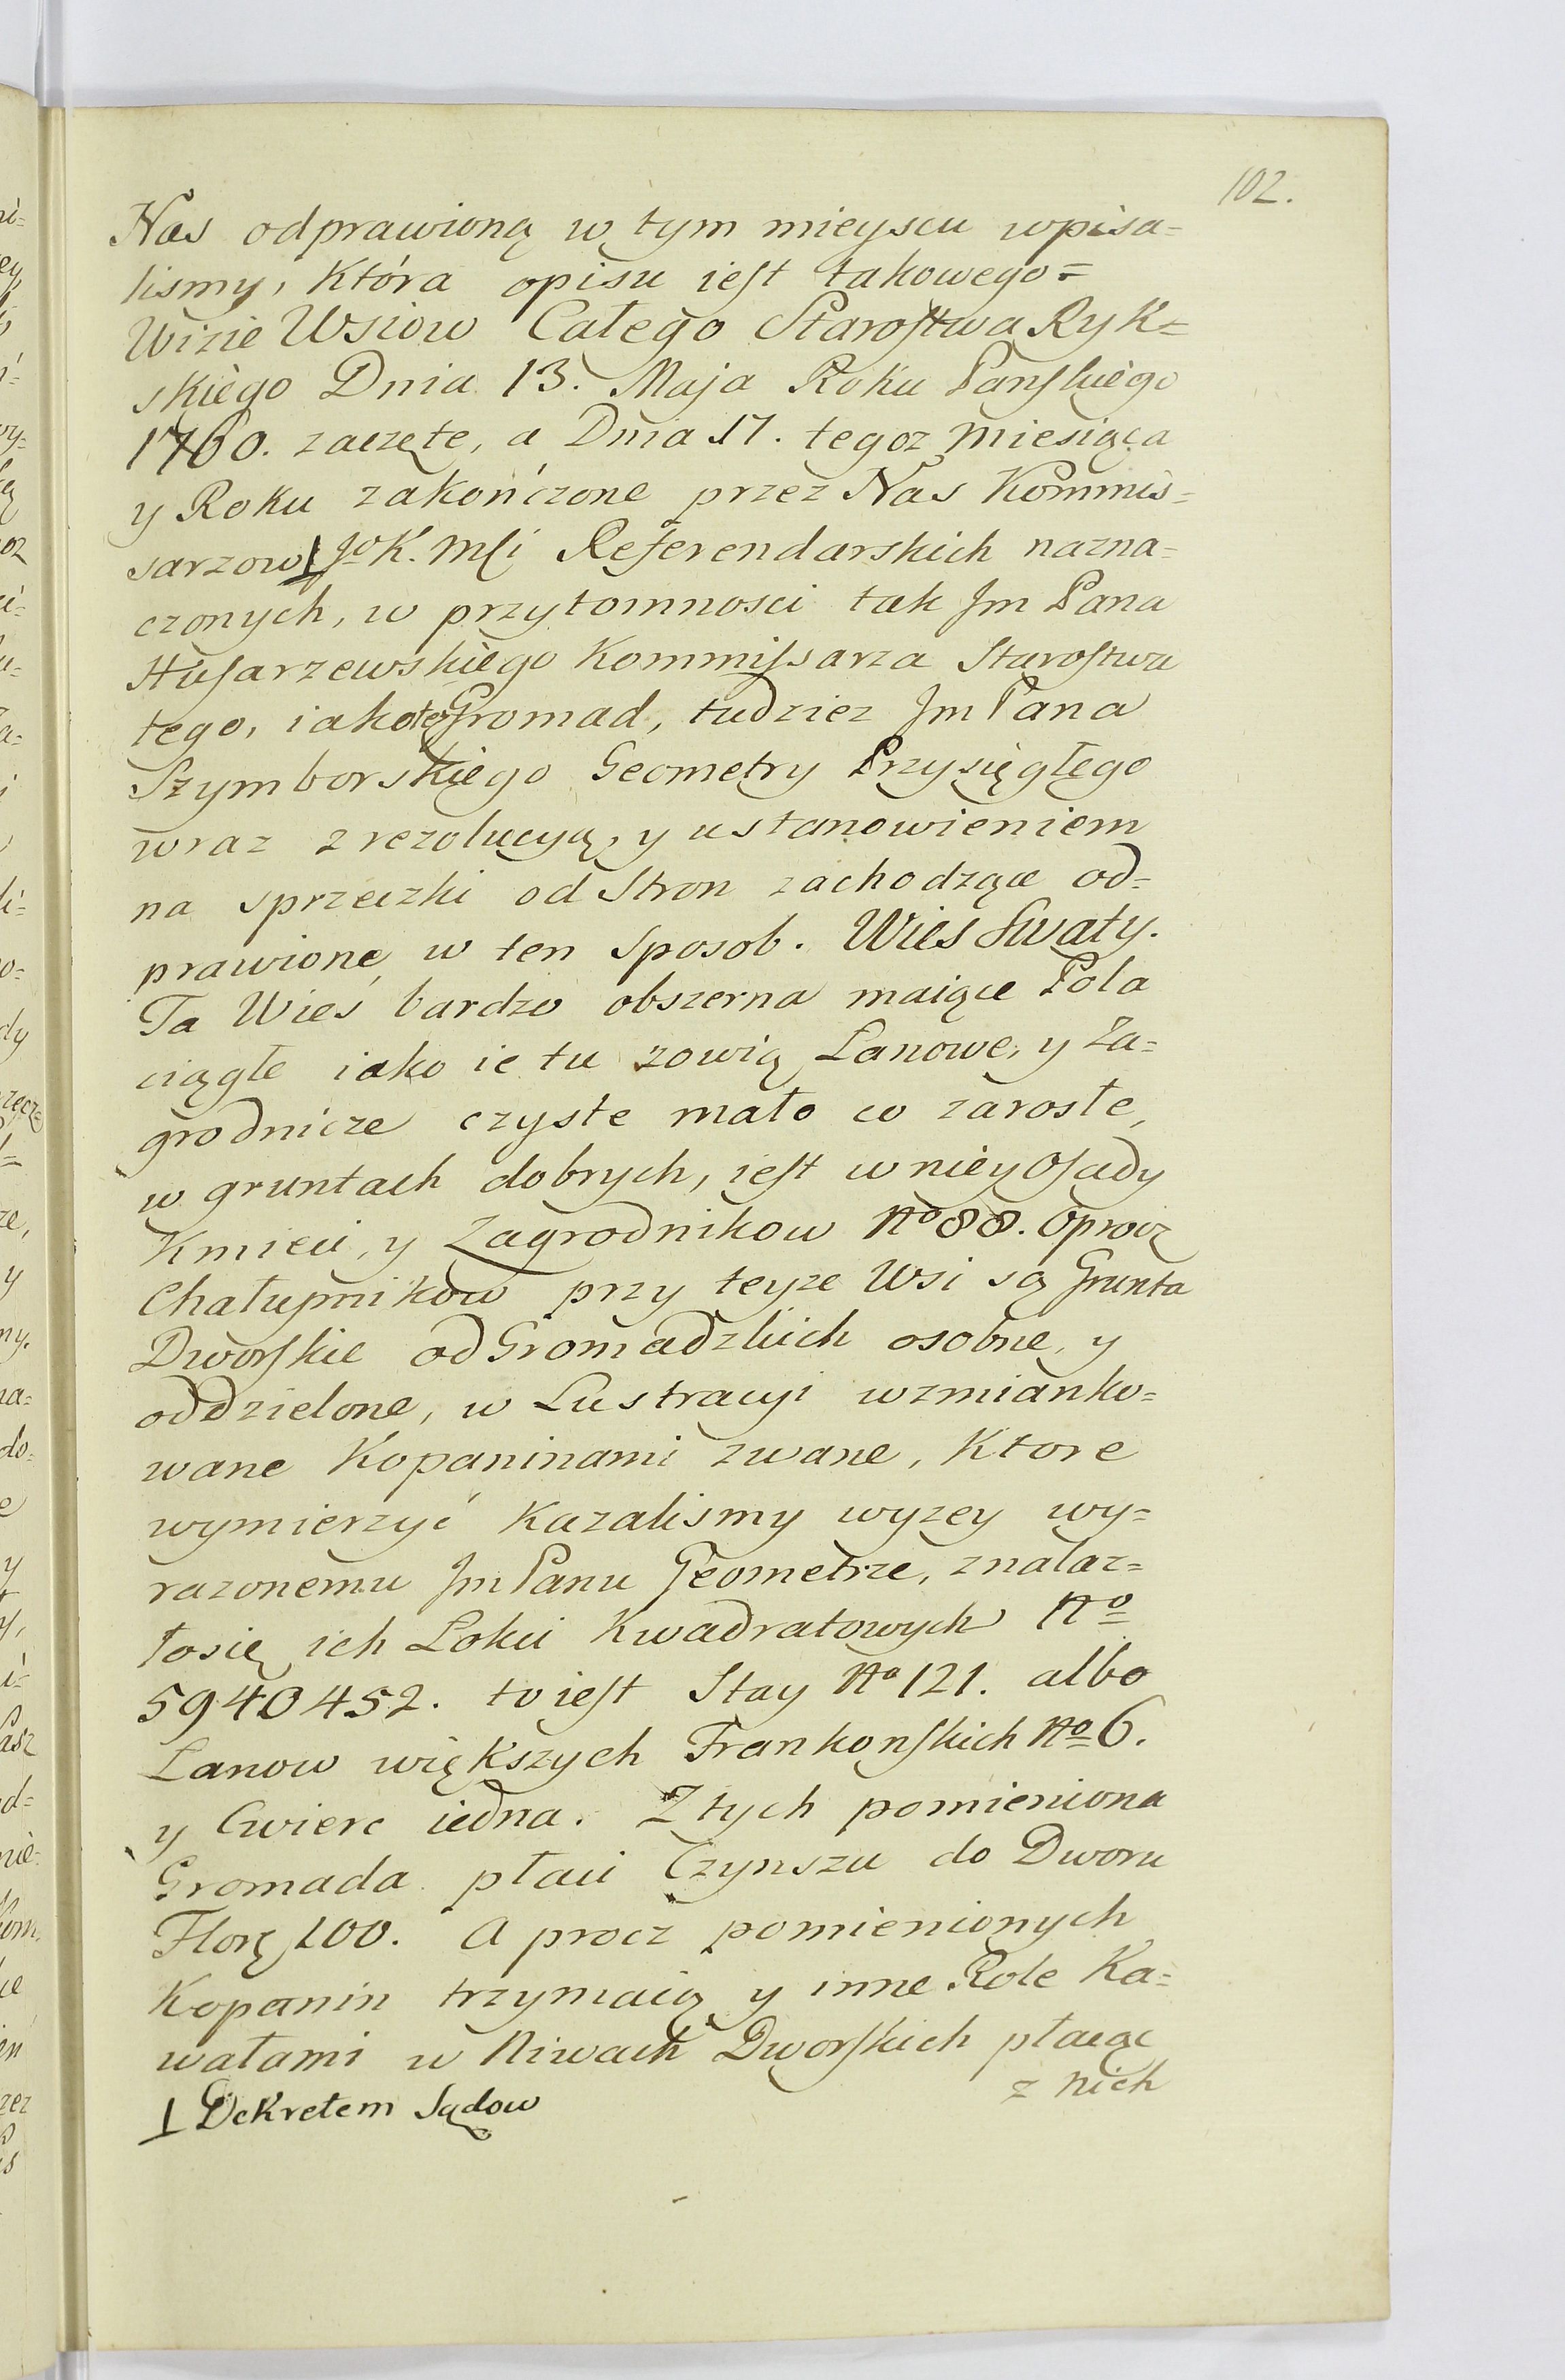 102.
Nas odprawioną w tym mieyscu wpisa=
lismy, Która opisu iest takowego=
Wizie Wsiow Całego Starostwa Ryk=
skiego Dnia 13. Maja Roku Panskiego
1760. zaczęte, a Dnia 17. tegoz Miesiąca
y Roku zakończone przez Nas Kommis=
sarzow⊥ Jo K. Mci Referendarskich nazna=
czonych, w przytomnosci tak Jm Pana
Husarzewskiego Kommissarza Starostwa
tego, iako też Gromad, tudziez Jm Pana
Szymborskiego Geometry Przysięgłego
wraz z rezolucyą, y ustanowieniem
na sprzeczki od Stron zachodzące od=
prawione w ten Sposob. Wies Swaty.
Ta Wieś bardzo obszerna maiące Pola
ciągłe iako ie tu zowią Lanowe, y Za=
grodnicze czyste mało co zarosłe,
w gruntach dobrych, iest w niey Osady
Kmieci, y Zagrodnikow No 88. Oprocz
Chałupnikow przy teyze Wsi są Grunta
Dworskie od Gromadzkich osobne, y
oddzielone, w Lustracyi wzmianko=
wane Kopaninami zwane, Ktore
wymierzyć Kazalismy wyzey wy=
razonemu Jm Panu Geometrze, znalaz=
łosię ich Lokci Kwadratowych No
5940452. to iest Stay No 121. albo
Lanow większych Frankonskich No 6.
y Cwierc iedna. Z tych pomieniona
Gromada płaci Czynszu do Dworu
Flor. 100. A procz pomienionych
Kopanin trzymaią y inne Role Ka=
wałami w Niwach Dworskich płacąc
z nich
⊥ Dekretem Sądow